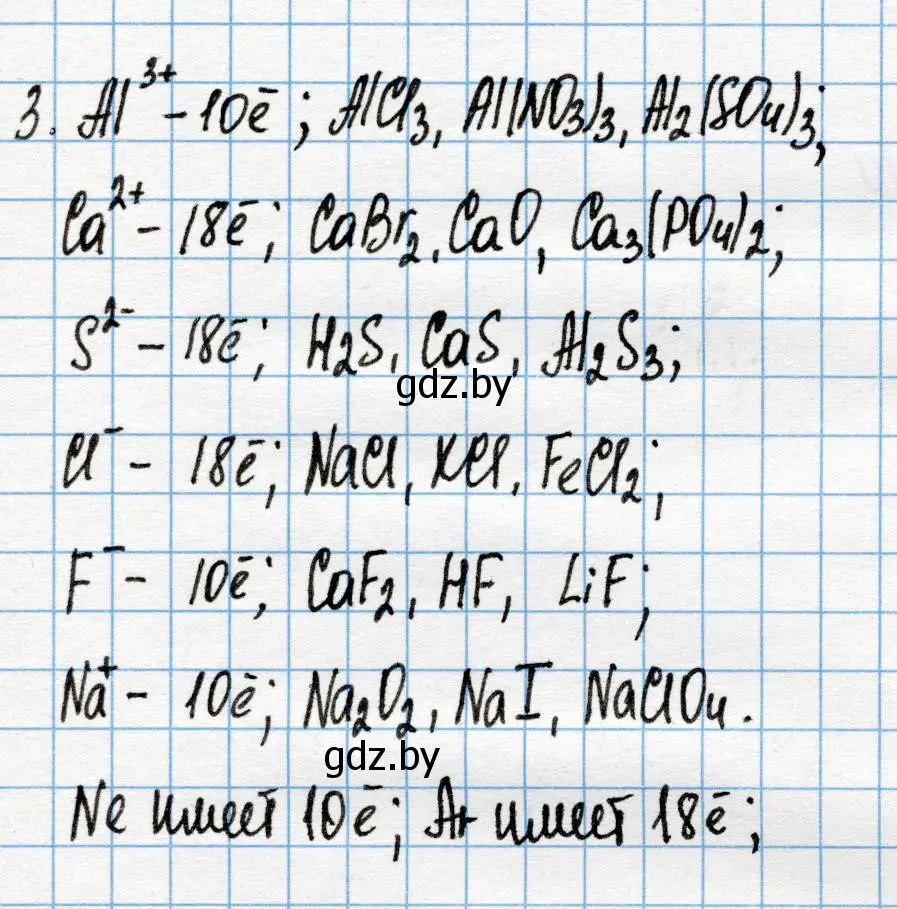 3. Al³⁺ - 10ē; AlCl₃, Al(NO₃)₃, Al₂(SO₄)₃,
Ca²⁺ - 18ē; CaBr₂, CaO, Ca₃(PO₄)₂;
S²⁻ - 18ē; H₂S, CaS, Al₂S₃;
gdz.by
Cl⁻ - 18ē; NaCl, KCl, FeCl₂;
F⁻ - 10ē; CaF₂, HF, LiF;
Na⁺ - 10ē; Na₂O₂, NaI, NaClO₄.
gdz.by
Ne имеет 10ē; Ar имеет 18ē;